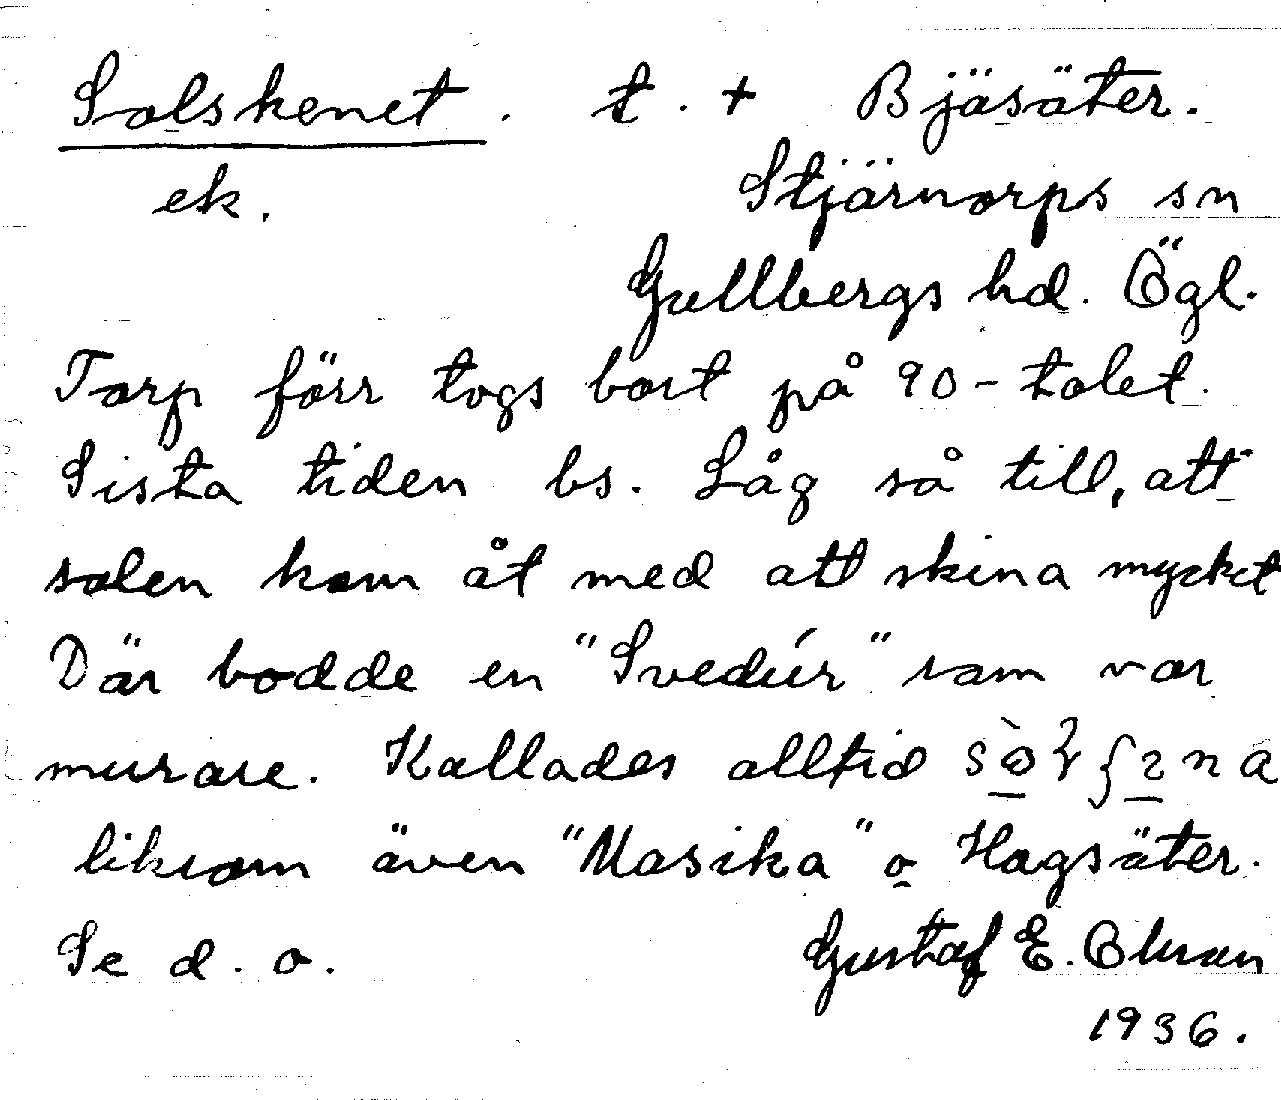 Solskenet. t. + Bjäsäter.
ek. Stjärnorps sn
Gullbergs hd. Ögl.
Torp förr togs bort på 90-talet.
Sista tiden bs. Låg så till, att
solen kom åt med att skina mycket
Där bodde en "Svedúr" som var
murare. Kallades alltid
liksom även "Masika" o Hagsäter.
Se d. o. Gustaf E. Ohman
1936.